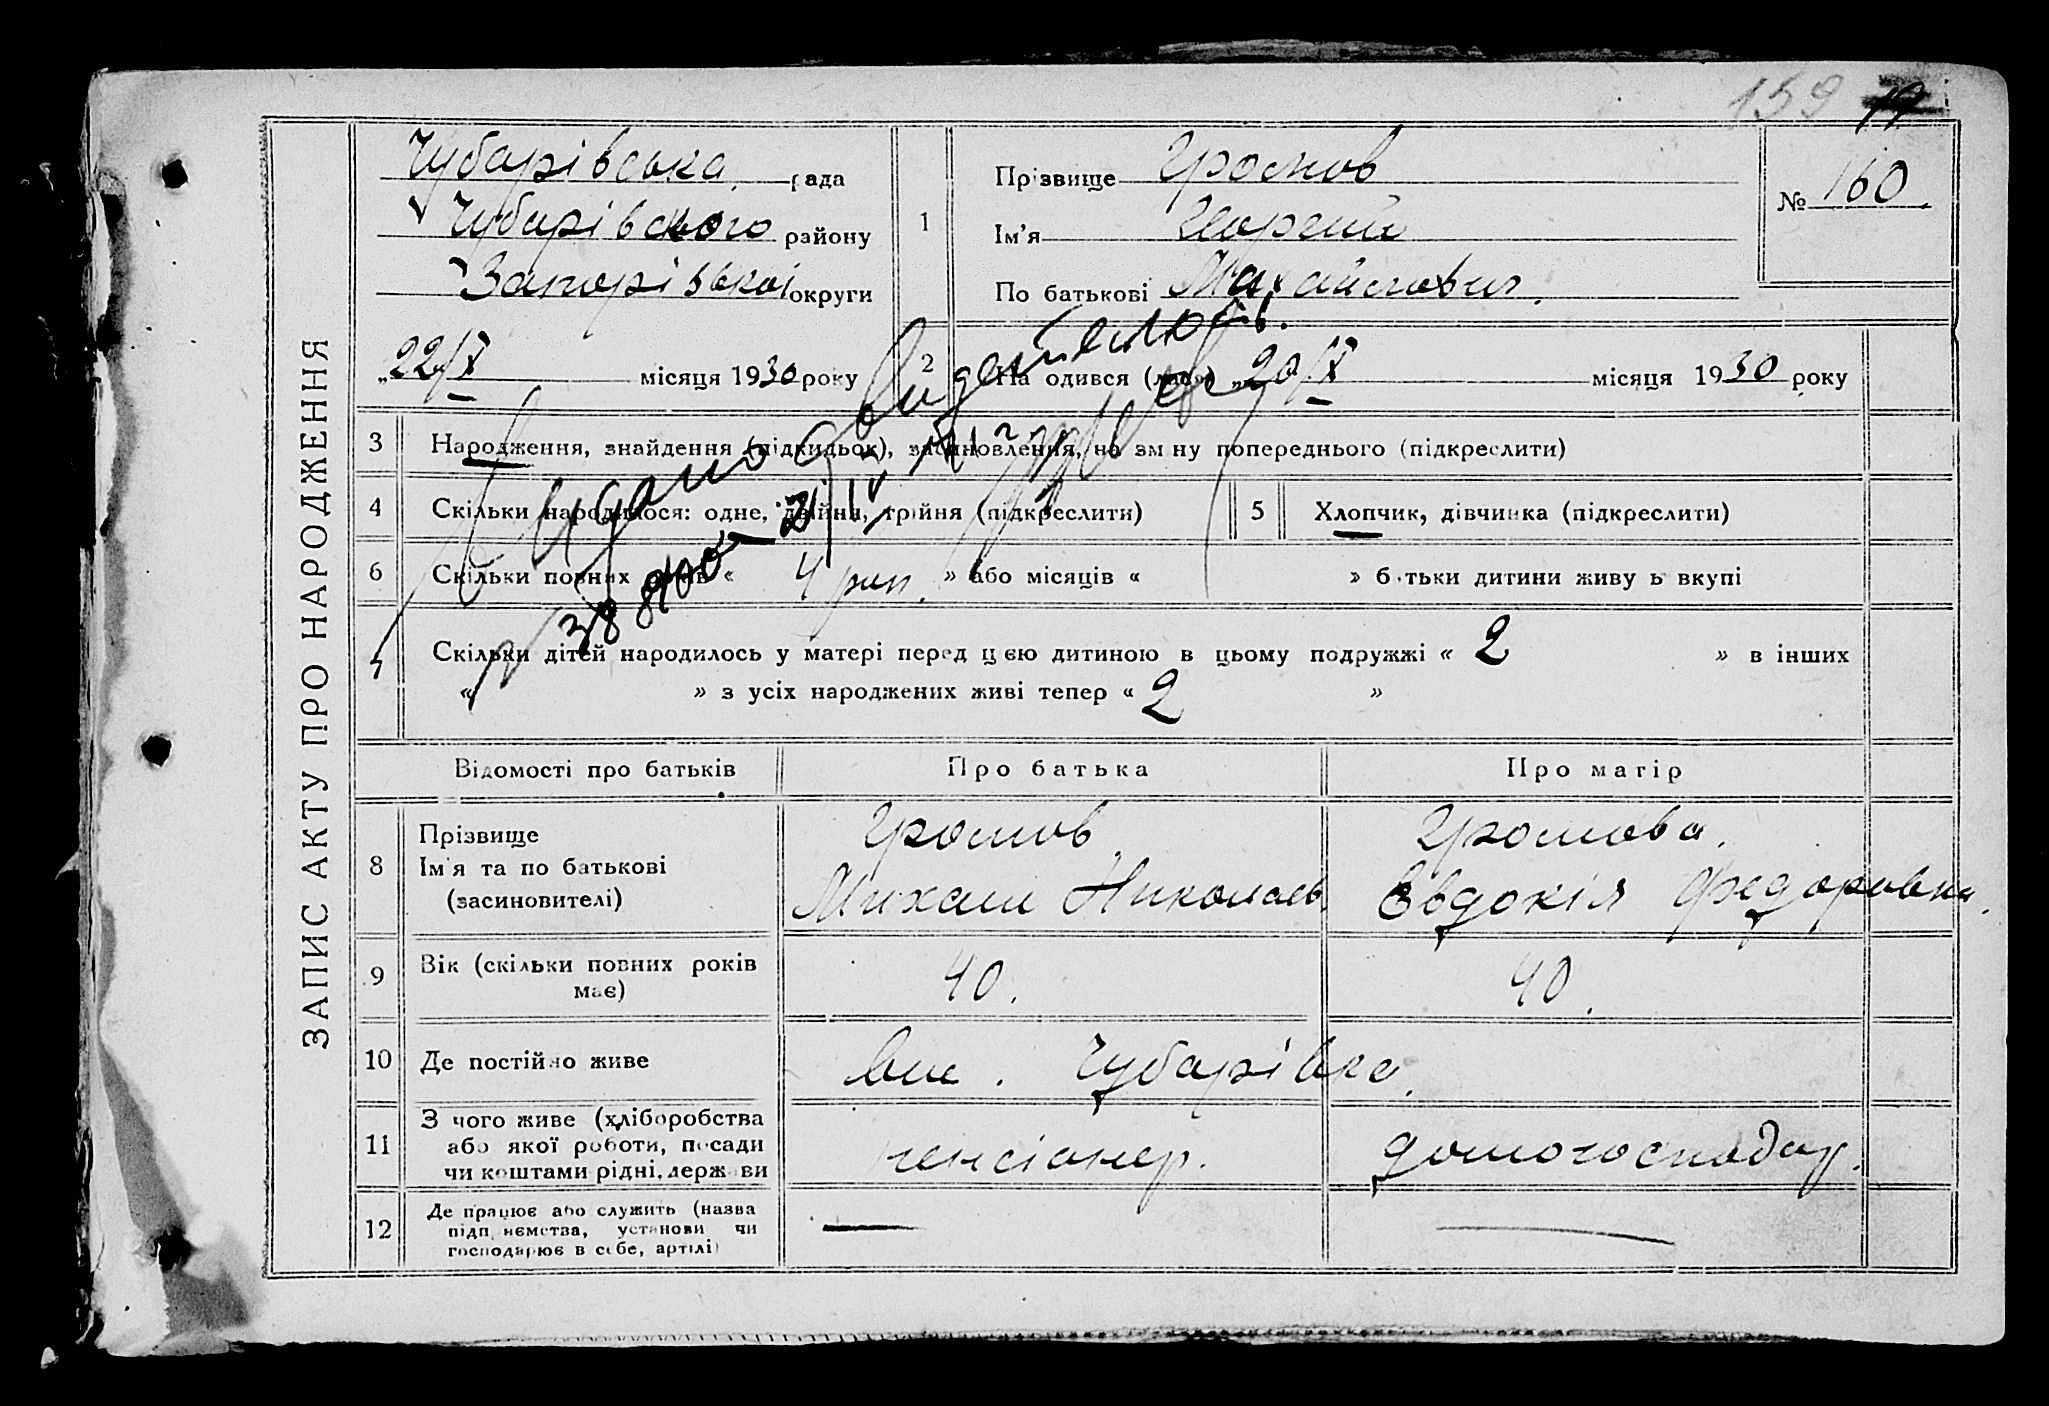 159
ЗАПИС АКТУ ПРО НАРОДЖЕННЯ
Чубарівська рада
Чубарівського району
Запорізької округи
"22/X місяця 1930 року
1
Прізвище Громов
Ім'я Георгий
По батькові Михайлович.
№ 160.
2 На одився (лась) „20/X місяця 1930 року
3 Народження, знайдення (підкидьок), засиновлення, на зміну попереднього (підкреслити)
4 Скільки народилося: одне, двійня, трійня (підкреслити)
5 Хлопчик, дівчинка (підкреслити)
Видано свидетельств.
6 Скільки повних років « 4 рип. » або місяців « » батьки дитини живуть вкупі
7 Скільки дітей народилось у матері перед цією дитиною в цьому подружжі « 2 » в інших
« » з усіх народжених живі тепер « 2 »
Відомості про батьків Про батька Про матір
8 Прізвище Громов. Громова.
Ім'я та по батькові Михаил Николаев. Євдокія Федоровна.
(засиновителі)
9 Вік (скільки повних років має) 40. 40.
10 Де постійно живе Чубарівка.
11 З чого живе (хліборобства
або якої роботи, посади пенсіонер. домогосподар.
чи коштами рідні, держави
12 Де працює або служить (назва
підприємства, установи чи
господарює в себе, артілі)